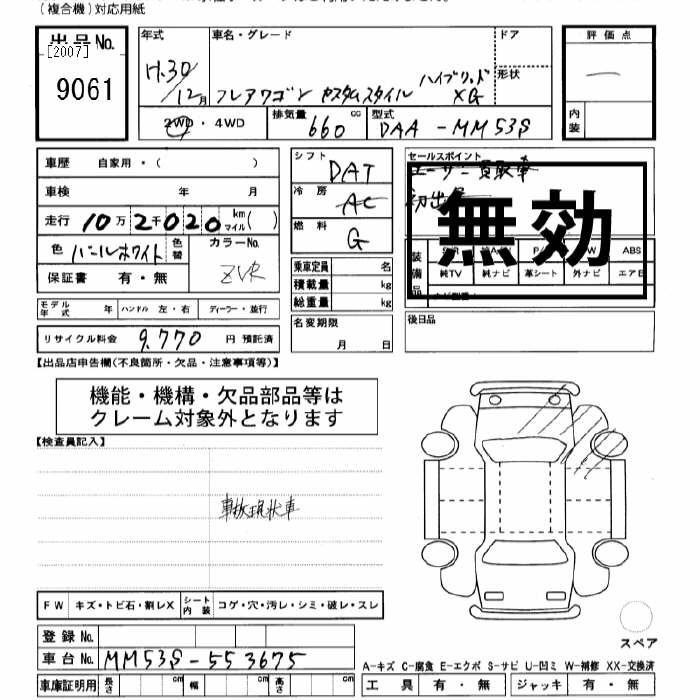 (複合機)対応用紙
出品No.
[2007]
9061
年式
H.30/12月
車名・グレード
フレアワゴン カスタムスタイル ハイブリッド XG
ドア
形状
評価点
内装
2WD・4WD
排気量
660 cc
型式
DAA-MM53S
車歴 自家用・( )
車検 年 月
走行 10万2千020 km マイル( )
色 パールホワイト 色替
カラーNo.
ZVR
保証書 有・無
シフト DAT
冷房 AC
燃料 G
乗車定員 名
積載量 kg
総重量 kg
セールスポイント
ユーザー買取車
初出品
無効
装備品
ABS
純TV 純ナビ 革シート 外ナビ エアB
モデル年式 年 ハンドル 左・右 ディーラー・並行
リサイクル料金 9,770 円 預託済
名変期限
月 日
後日品
【出品店申告欄(不良箇所・欠品・注意事項等)】
機能・機構・欠品部品等は
クレーム対象外となります
【検査員記入】
事故現状車
FW キズ・トビ石・割レX シート内装 コゲ・穴・汚レ・シミ・破レ・スレ
登録No.
車台No. MM53S-553675
車庫証明用 長さ cm 幅 cm 高さ cm
スペア
A-キズ C-腐食 E-エクボ S-サビ U-凹ミ W-補修 XX-交換済
工具 有・無 ジャッキ 有・無